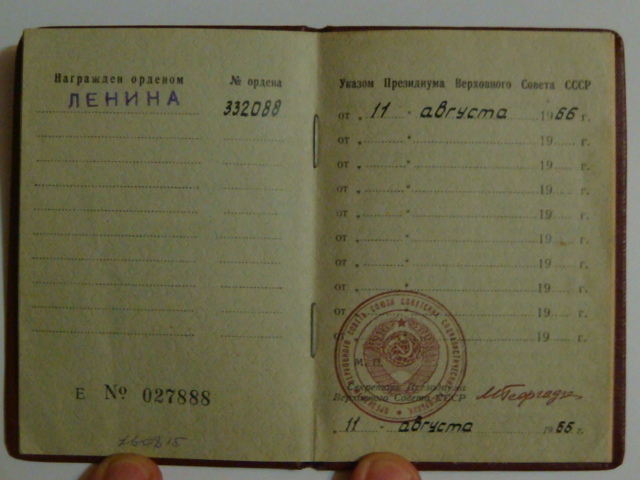 Награжден орденом № ордена
ЛЕНИНА 332088
Е № 027888
Указом Президиума Верховного Совета СССР
от „ 11 " августа 1966 г.
от „ " 19 г.
от „ " 19 г.
от „ " 19 г.
от „ " 19 г.
от „ " 19 г.
от „ " 19 г.
от „ " 19 г.
от „ " 19 г.
от „ " 19 г.
М. П.
Секретарь Президиума
Верховного Совета СССР
„ 11 " августа 1966 г.